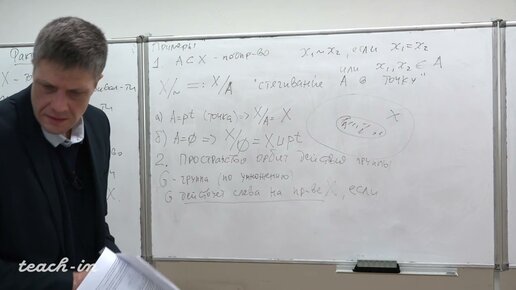 Фак
X -
Примеры
1. A⊂X - подпр-во x₁~x₂, если x₁=x₂
или x₁,x₂ ∈ A
X/~ =: X/A "стягивание A в точку"
а) A=pt (точка) => X/A = X
б) A=∅ => X/∅ = X⊔pt
X
2. Пространства орбит действия группы
G - группа (по умножению)
G действует слева на пр-ве X, если
X.
teach-in